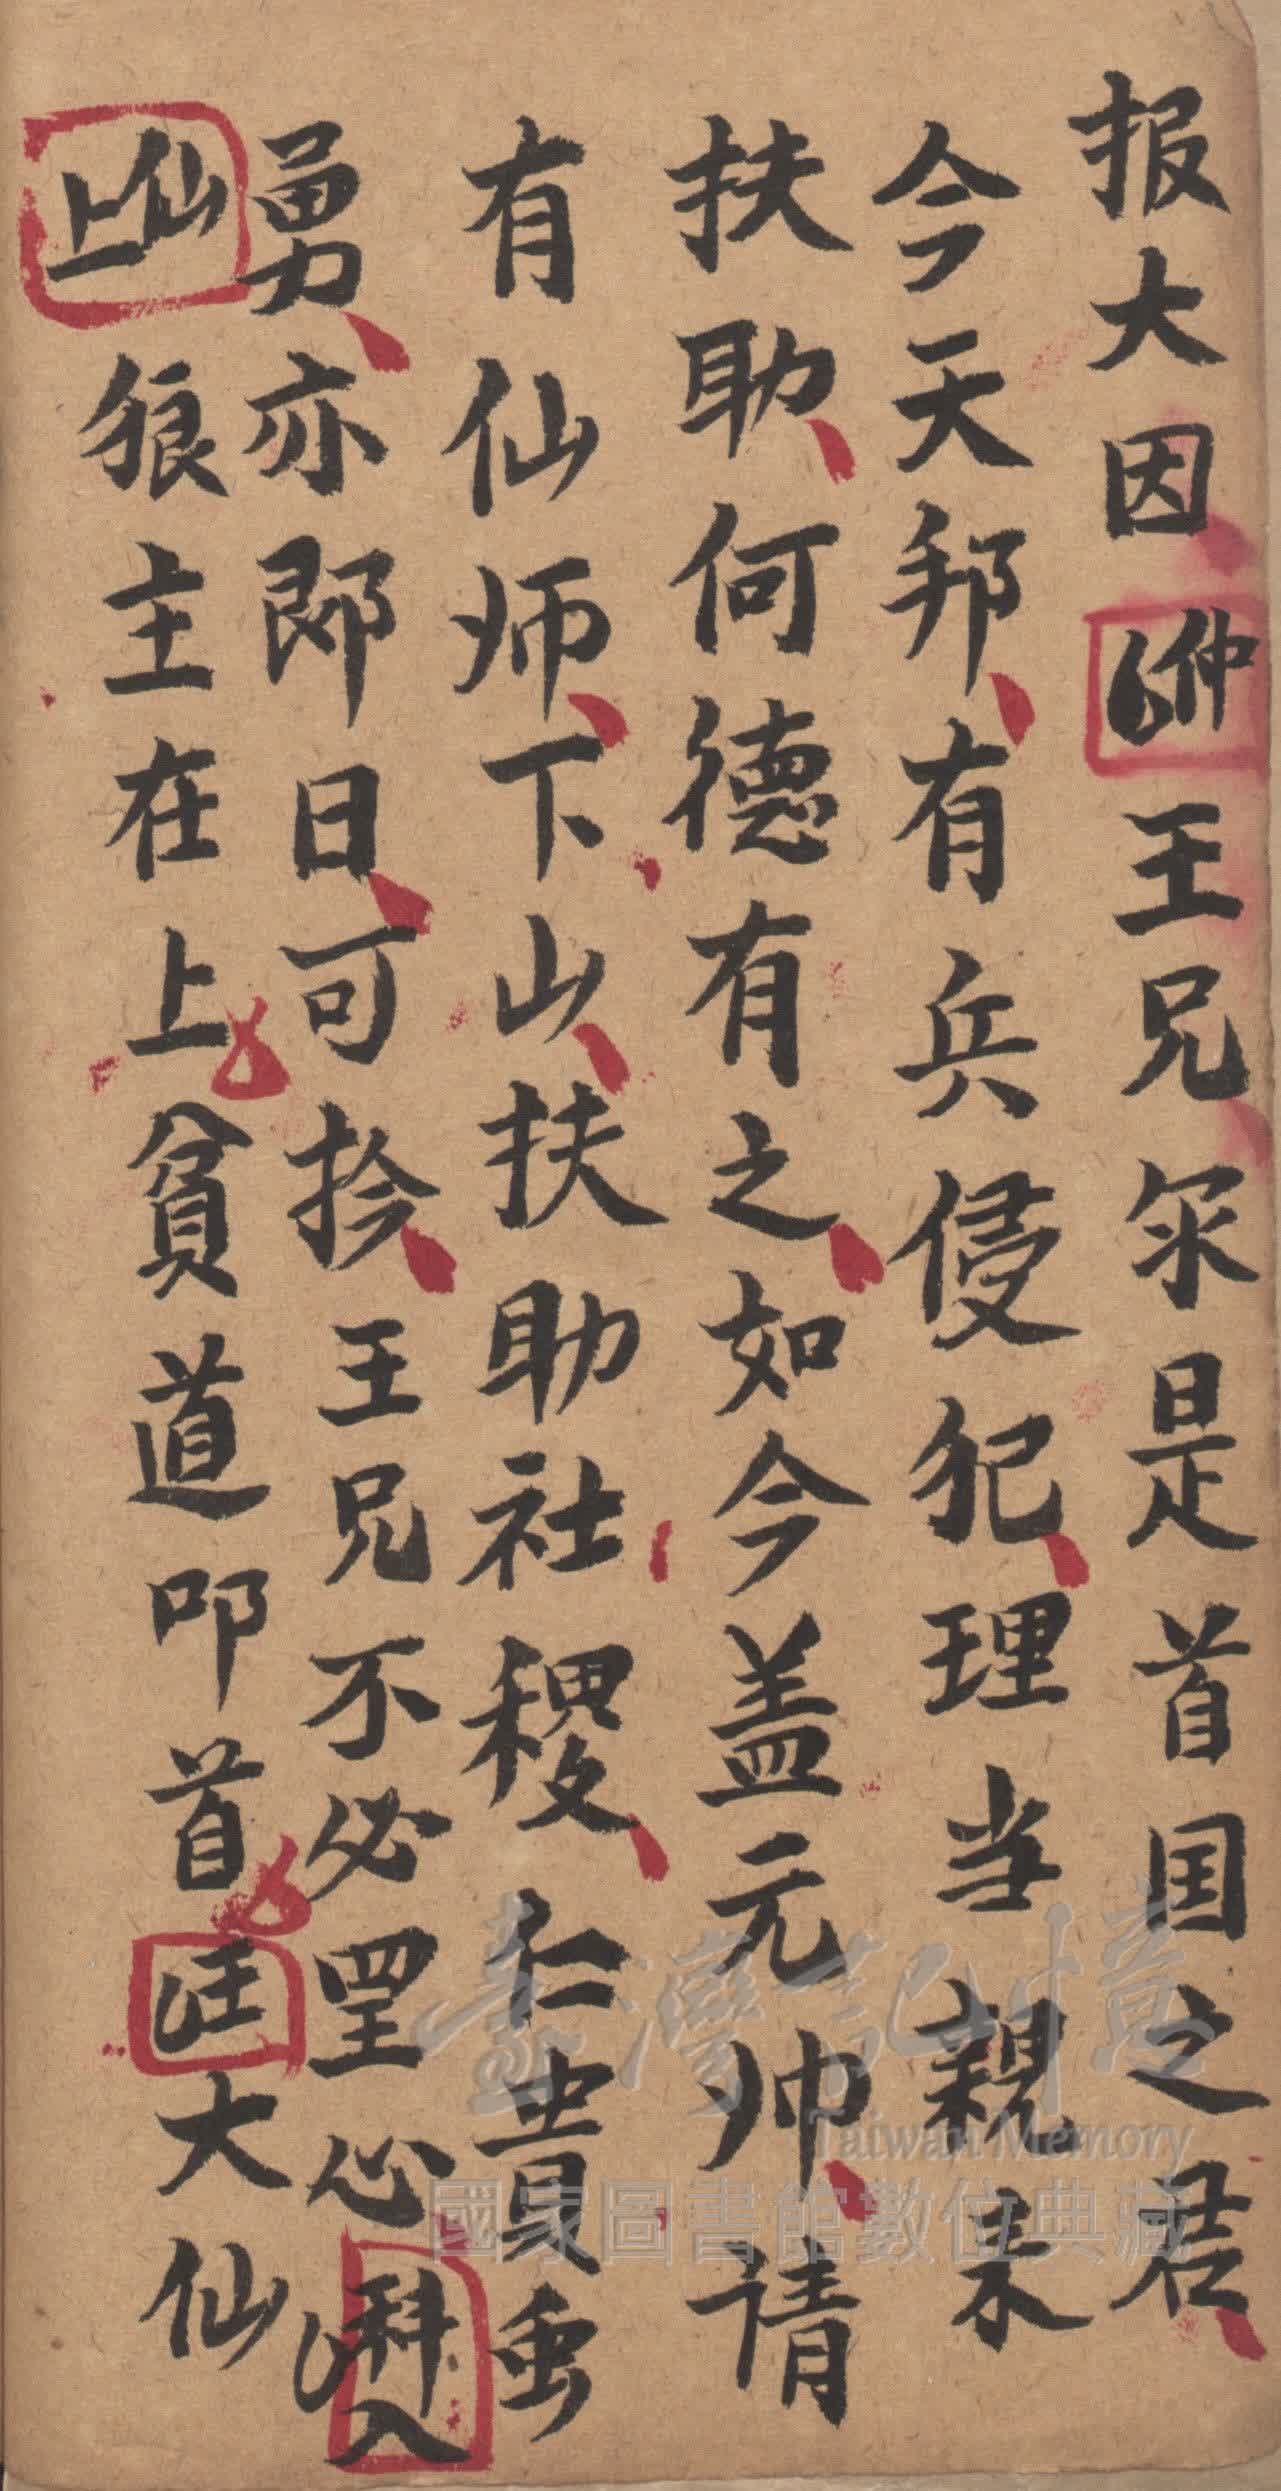 报大因仲白王兄尔是首国之君
今天邦有兵侵犯理当親来
扶助何德有之如今盖元帅请
有仙师下山扶助社稷仁貴虽
勇亦即日可拎王兄不必罣心科白入
仙上狼主在上貧道叩首王白大仙
臺灣記憶
Taiwan Memory
國家圖書館數位典藏